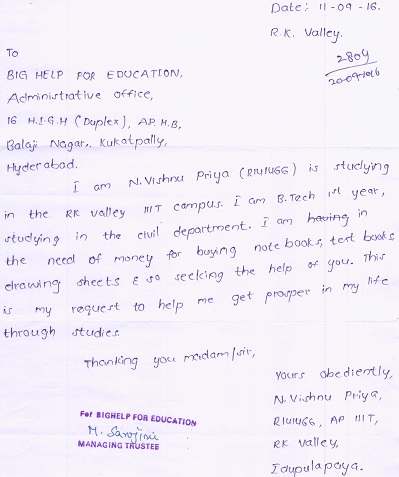 Date: 11-09-16.
R.K. Valley.
2804
20-09-2016
To
BIG HELP FOR EDUCATION,
Administrative office,
16 H.I.G.H (Duplex), A.P.H.B,
Balaji Nagar, Kukatpally,
Hyderabad.
I am N.Vishnu Priya (R141466) is studying
in the RK valley IIIT campus. I am B.Tech 1st year,
studying in the civil department. I am having in
the need of money for buying note books, text books
drawing sheets & so seeking the help of you. This
is my request to help me get prosper in my life
through studies.
Thanking you madam/sir,
Yours obediently,
N. Vishnu Priya,
R141466, AP IIIT,
RK Valley,
Idupulapaya.
For BIGHELP FOR EDUCATION
M. Sarojini
MANAGING TRUSTEE